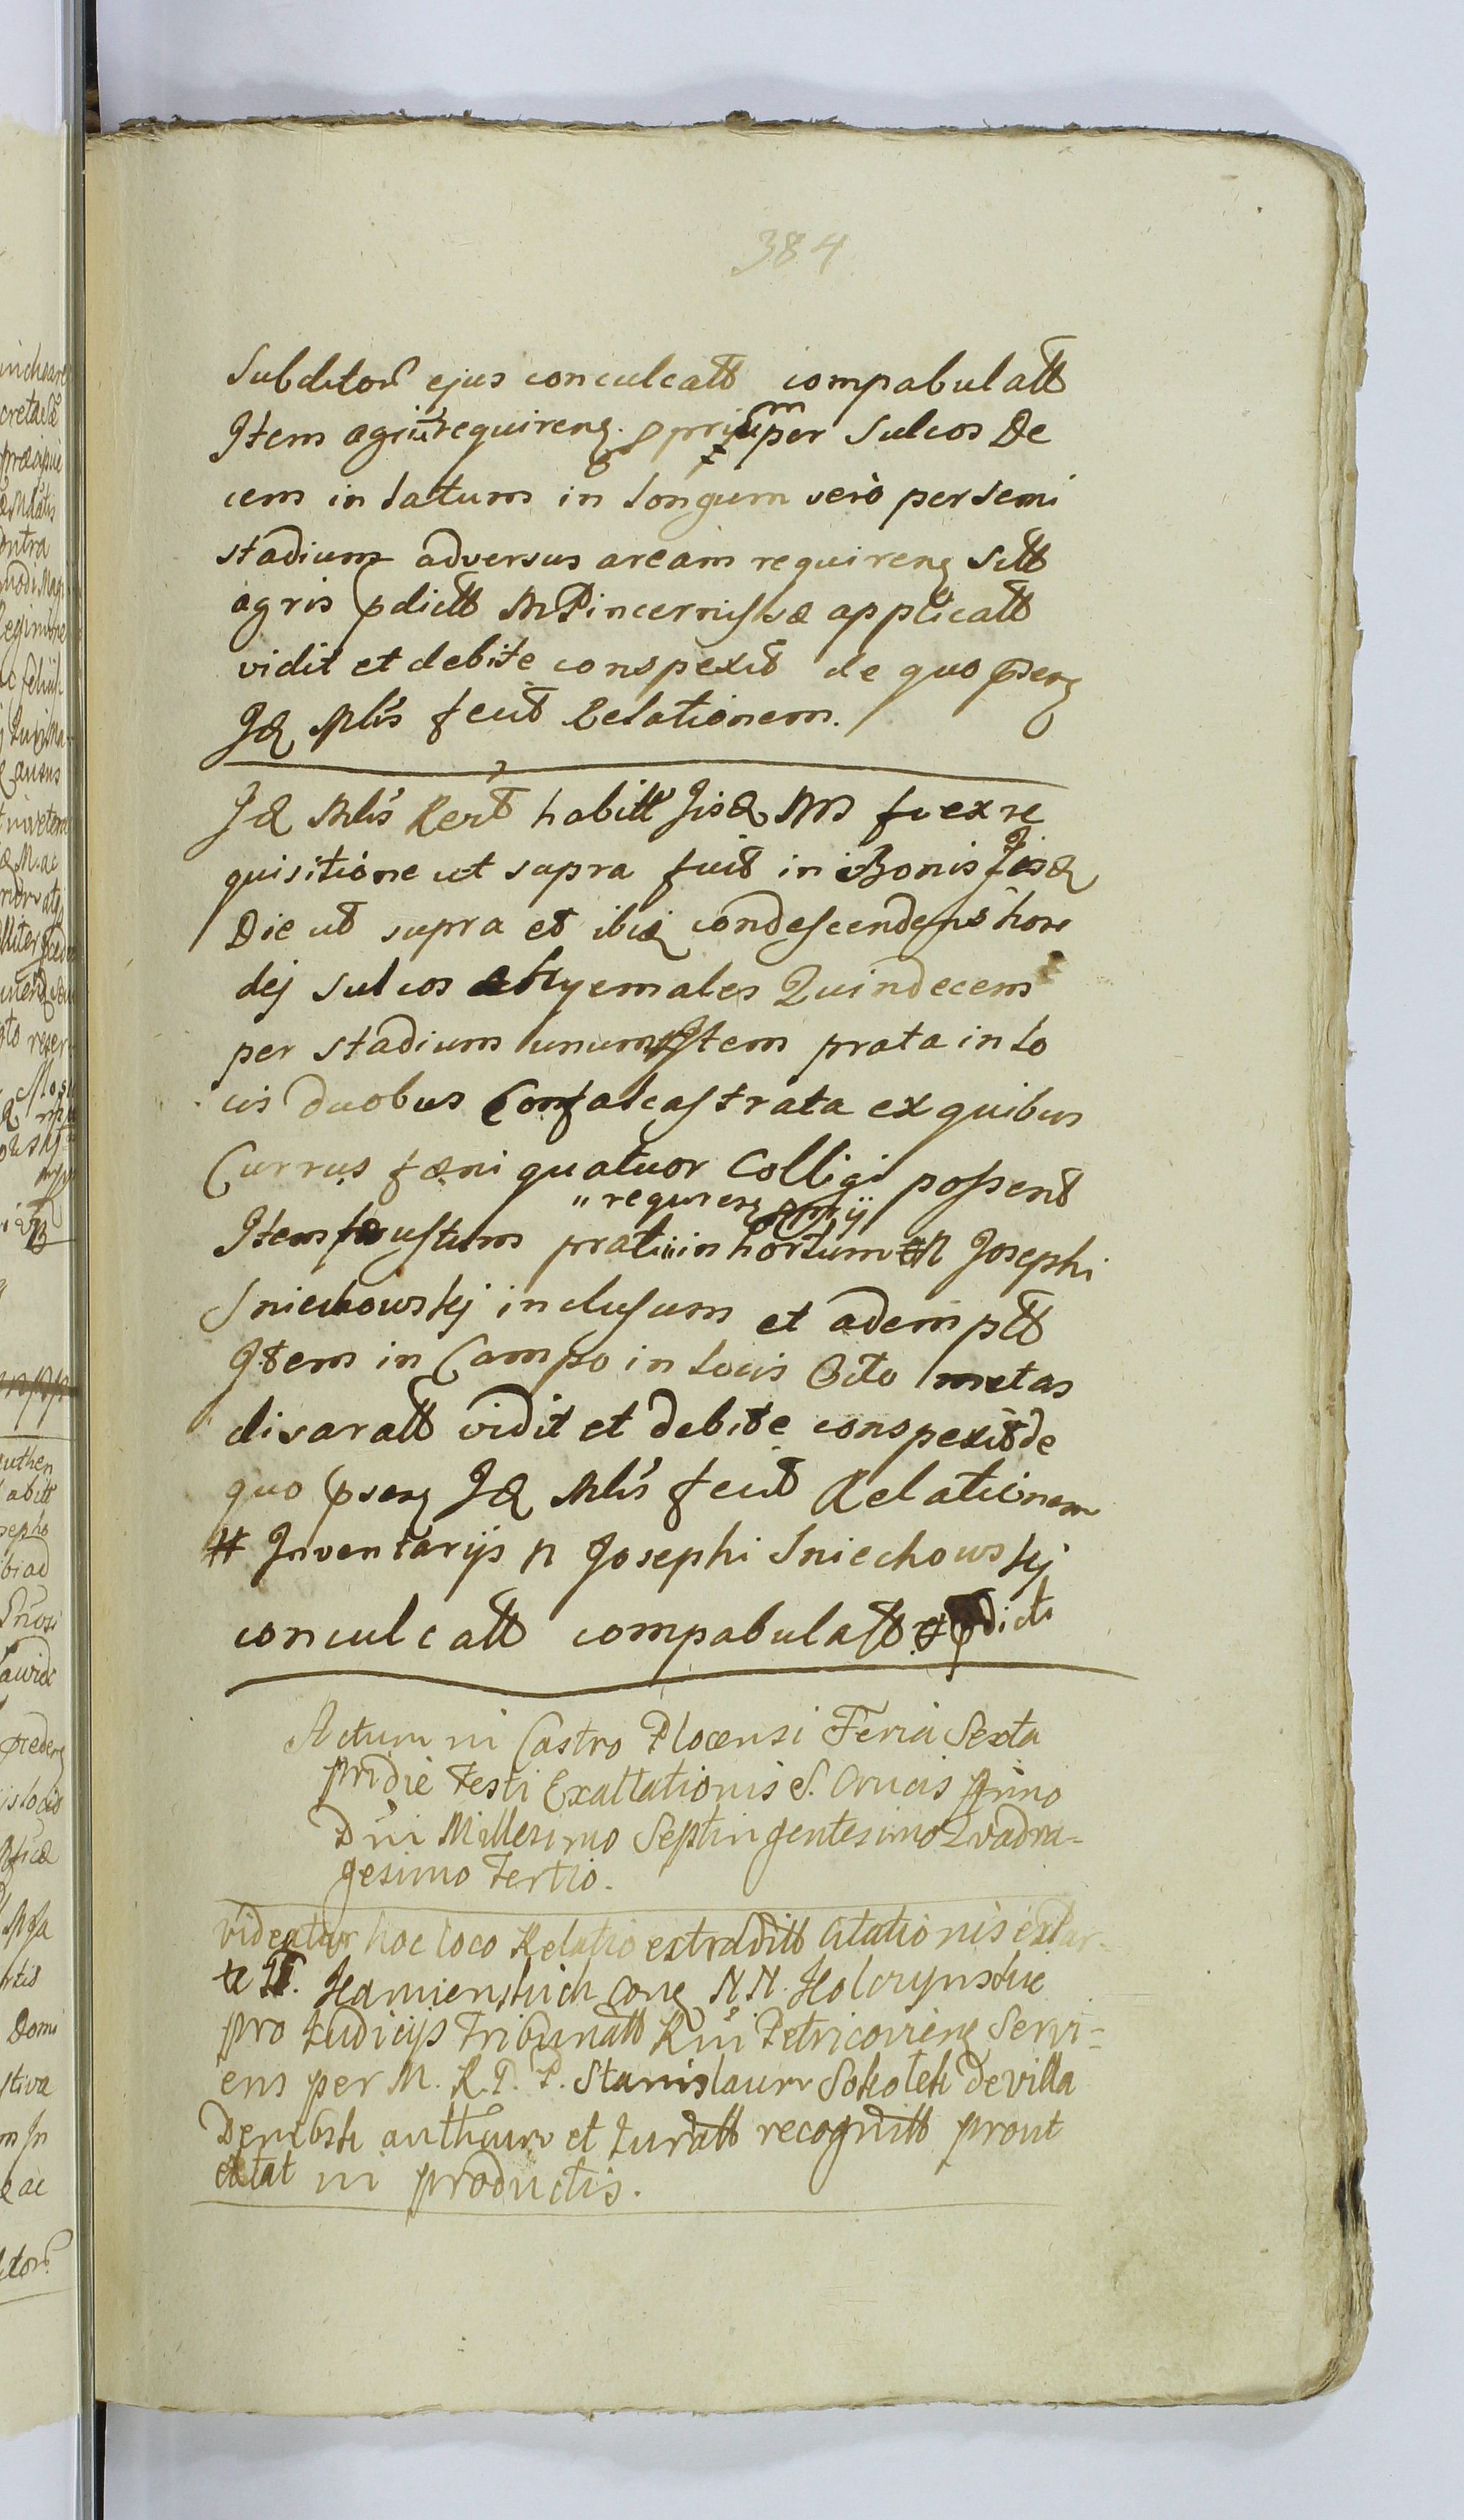 384
Subditor ejus conculcatt compabulatt
Item agrū requireng. pprium per Sulcos De
cem in latum in longum vero per semi
stadium adversus aream requireng Sitt
agris pdictt M Pincernissæ applicatt
vidit et debite conspexit de quo pseng
Id Mlis fecit Relationem.
Id Mlis Rert habitt Jisd MM fr ex re
quisitione ut supra fuit in Bonis Jisd
Die ut supra et ibiq condescendens hor
dej sulcos Hyemales Quindecem
per stadium unum Item prata in lo
cis duobus Confalcastrata ex quibus
Currus fæni quatuor Colligi possent
" requireng
Item frustum prati in hortum N Josephi
Sniechowskj inclusum et ademptt
Item in Campo in locis Octo metas
disaratt vidit et debite conspexit de
quo pseng Id Mlis fecit Relationem
# Inventarijs N Josephi Sniechowskj
conculcatt compabulatt dicti
Actum in Castro Plocensi Feria Sexta
pridie Festi Exaltationis S. Crucis Anno
Dni Millesimo Septingentesimo Quadra-
gesimo Tertio.
videatur hoc loco Relatio extraditt Citationis ex par-
te Kamienskich Cong N.N. Holczynskie
pro Judicijs Tribunatt Rni Petricovieng Servi=
ens per M. R. P. P. Stanislaum Sokolek De villa
Dembsk authum et Juratt recognitt prout
extat in productis.